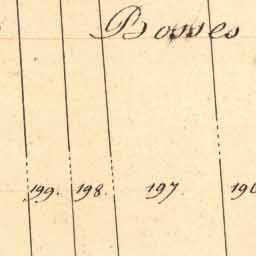 Bosses
199. 198. 197. 196